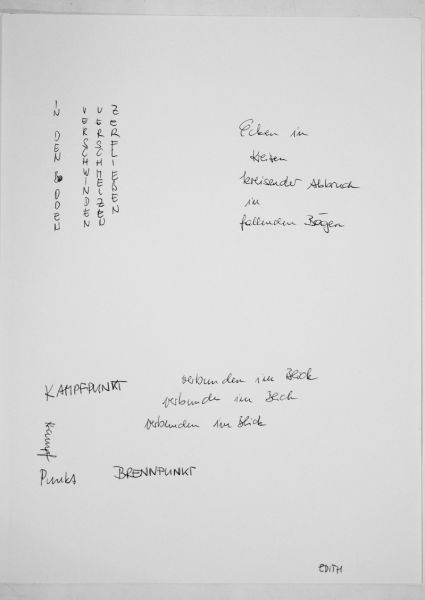 IN DEN BODEN
VERSCHWINDEN
VERSCHMELZEN
ZERFLIEßEN
Ecken in
kreisender Abbruch
in
fallenden Bögen
KAMPFPUNKT
verbunden im Blick
verbunden im Blick
verbunden im Blick
Kampf
Punkt
BRENNPUNKT
EDITH